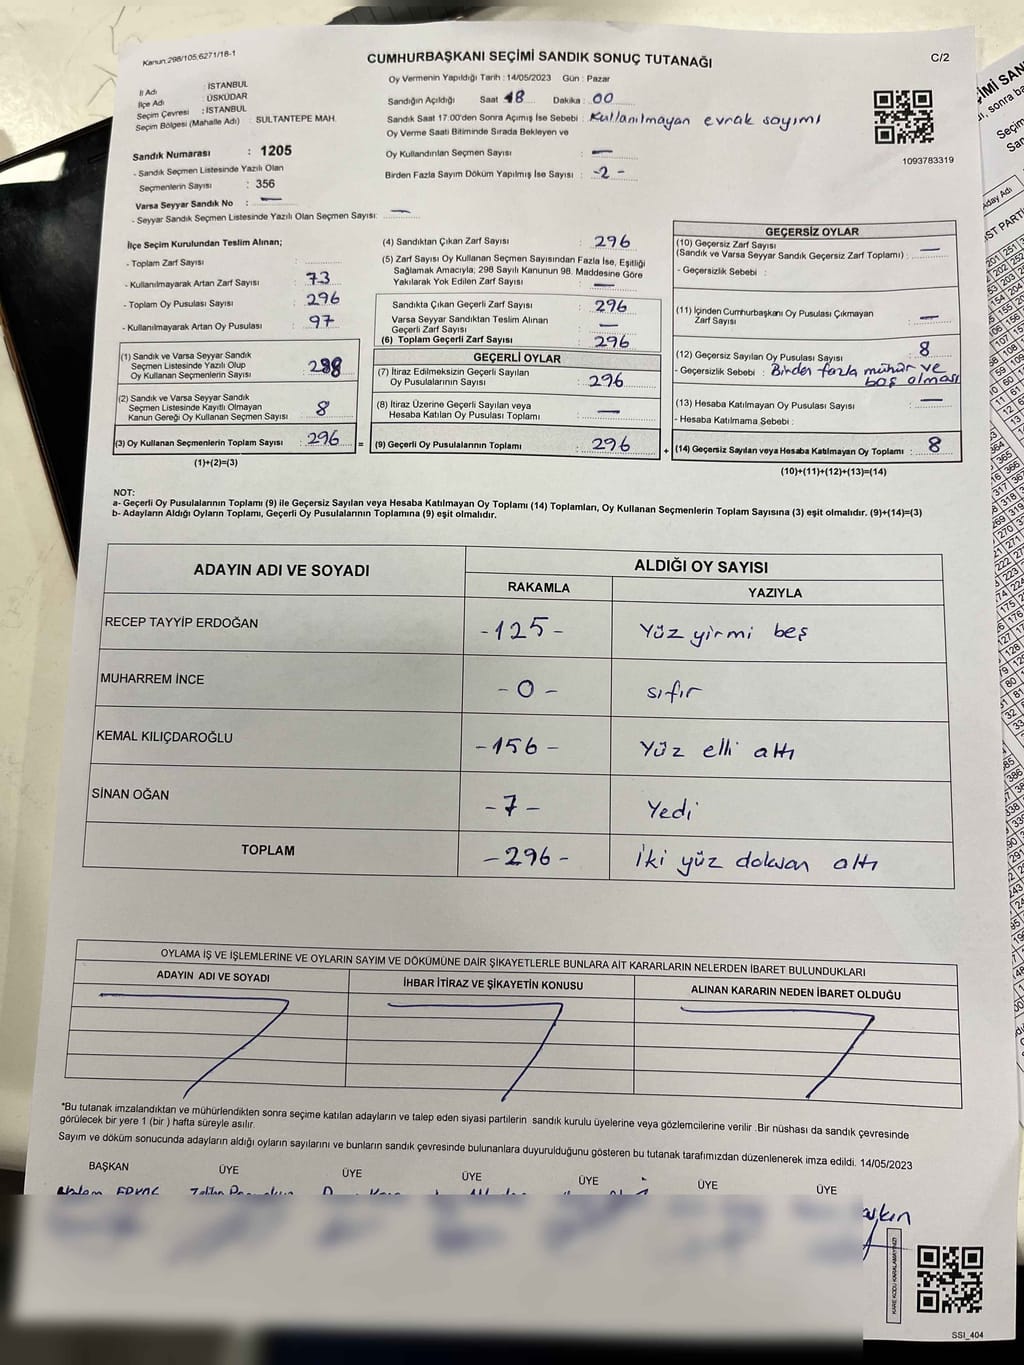 Kanun.298/105,6271/18-1
CUMHURBAŞKANI SEÇİMİ SANDIK SONUÇ TUTANAĞI
C/2
İl Adı : İSTANBUL
İlçe Adı : ÜSKÜDAR
Seçim Çevresi : İSTANBUL
Seçim Bölgesi (Mahalle Adı) : SULTANTEPE MAH.
Oy Vermenin Yapıldığı Tarih : 14/05/2023 Gün : Pazar
Sandığın Açıldığı Saat 18 Dakika : 00
Sandık Saat 17.00'den Sonra Açımış İse Sebebi : Kullanılmayan evrak sayımı
Oy Verme Saati Bitiminde Sırada Bekleyen ve
Oy Kullandırılan Seçmen Sayısı : —
Birden Fazla Sayım Döküm Yapılmış İse Sayısı : -2-
1093783319
Sandık Numarası : 1205
- Sandık Seçmen Listesinde Yazılı Olan
Seçmenlerin Sayısı : 356
Varsa Seyyar Sandık No : —
- Seyyar Sandık Seçmen Listesinde Yazılı Olan Seçmen Sayısı: —
İlçe Seçim Kurulundan Teslim Alınan;
- Toplam Zarf Sayısı :
- Kullanılmayarak Artan Zarf Sayısı : 73
- Toplam Oy Pusulası Sayısı : 296
- Kullanılmayarak Artan Oy Pusulası : 97
(1) Sandık ve Varsa Seyyar Sandık
Seçmen Listesinde Yazılı Olup
Oy Kullanan Seçmenlerin Sayısı : 288
(2) Sandık ve Varsa Seyyar Sandık
Seçmen Listesinde Kayıtlı Olmayan
Kanun Gereği Oy Kullanan Seçmen Sayısı : 8
(3) Oy Kullanan Seçmenlerin Toplam Sayısı : 296 =
(1)+(2)=(3)
(4) Sandıktan Çıkan Zarf Sayısı : 296
(5) Zarf Sayısı Oy Kullanan Seçmen Sayısından Fazla İse, Eşitliği
Sağlamak Amacıyla; 298 Sayılı Kanunun 98. Maddesine Göre
Yakılarak Yok Edilen Zarf Sayısı : —
Sandıkta Çıkan Geçerli Zarf Sayısı : 296
Varsa Seyyar Sandıktan Teslim Alınan
Geçerli Zarf Sayısı : —
(6) Toplam Geçerli Zarf Sayısı : 296
GEÇERLİ OYLAR
(7) İtiraz Edilmeksizin Geçerli Sayılan
Oy Pusulalarının Sayısı : 296
(8) İtiraz Üzerine Geçerli Sayılan veya
Hesaba Katılan Oy Pusulası Toplamı : —
(9) Geçerli Oy Pusulalarının Toplamı : 296 +
GEÇERSİZ OYLAR
(10) Geçersiz Zarf Sayısı
(Sandık ve Varsa Seyyar Sandık Geçersiz Zarf Toplamı) : —
- Geçersizlik Sebebi :
(11) İçinden Cumhurbaşkanı Oy Pusulası Çıkmayan
Zarf Sayısı : —
(12) Geçersiz Sayılan Oy Pusulası Sayısı : 8
- Geçersizlik Sebebi : Birden fazla mühür ve
boş olması
(13) Hesaba Katılmayan Oy Pusulası Sayısı : —
- Hesaba Katılmama Sebebi :
(14) Geçersiz Sayılan veya Hesaba Katılmayan Oy Toplamı : 8
(10)+(11)+(12)+(13)=(14)
NOT:
a- Geçerli Oy Pusulalarının Toplamı (9) ile Geçersiz Sayılan veya Hesaba Katılmayan Oy Toplamı (14) Toplamları, Oy Kullanan Seçmenlerin Toplam Sayısına (3) eşit olmalıdır. (9)+(14)=(3)
b- Adayların Aldığı Oyların Toplamı, Geçerli Oy Pusulalarının Toplamına (9) eşit olmalıdır.
ADAYIN ADI VE SOYADI
ALDIĞI OY SAYISI
RAKAMLA YAZIYLA
RECEP TAYYİP ERDOĞAN -125- Yüz yirmi beş
MUHARREM İNCE -0- sıfır
KEMAL KILIÇDAROĞLU -156- Yüz elli altı
SİNAN OĞAN -7- Yedi
TOPLAM -296- İki yüz doksan altı
OYLAMA İŞ VE İŞLEMLERİNE VE OYLARIN SAYIM VE DÖKÜMÜNE DAİR ŞİKAYETLERLE BUNLARA AİT KARARLARIN NELERDEN İBARET BULUNDUKLARI
ADAYIN ADI VE SOYADI İHBAR İTİRAZ VE ŞİKAYETİN KONUSU ALINAN KARARIN NEDEN İBARET OLDUĞU
*Bu tutanak imzalandıktan ve mühürlendikten sonra seçime katılan adayların ve talep eden siyasi partilerin sandık kurulu üyelerine veya gözlemcilerine verilir .Bir nüshası da sandık çevresinde
görülecek bir yere 1 (bir ) hafta süreyle asılır.
Sayım ve döküm sonucunda adayların aldığı oyların sayılarını ve bunların sandık çevresinde bulunanlara duyurulduğunu gösteren bu tutanak tarafımızdan düzenlenerek imza edildi. 14/05/2023
BAŞKAN ÜYE ÜYE ÜYE ÜYE ÜYE ÜYE
KARE KODU KARALAMAYINIZ!
SSI_404